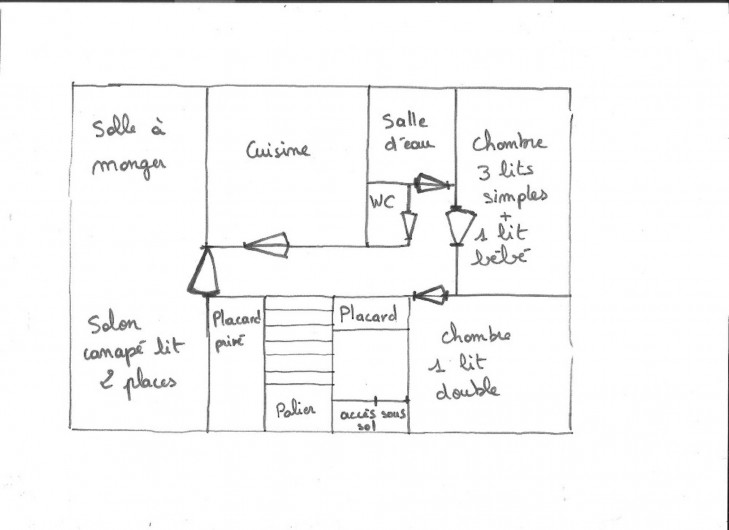 Salle à
manger
Cuisine
Salle
d'eau
Chambre
3 lits
simples
+
1 lit
bébé
WC
Salon
canapé lit
2 places
Placard
privé
Palier
Placard
accès sous
sol
Chambre
1 lit
double